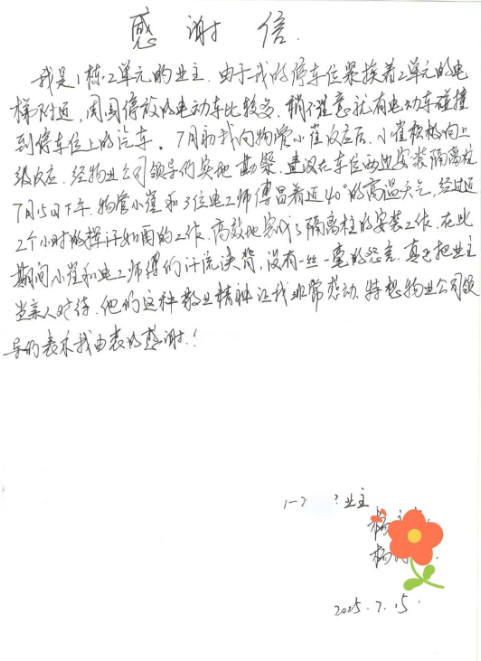 感谢信
我是1栋2单元的业主。由于我的停车位紧挨着2单元的电
梯附近，周围停放的电动车比较多，稍不注意就有电动车碰撞
到停车位上的汽车。7月初我向物管小崔反应后，小崔积极向上
级反应，经物业公司领导们实地勘察，建议在车位两边安装隔离柱
7月15日下午，物管小崔和3位电工师傅冒着近40°的高温天气，经过近
2个小时的挥汗如雨的工作，高效地完成了隔离柱的安装工作，在此
期间小崔和电工师傅们汗流浃背，没有一丝一毫的怨言，真正把业主
当亲人对待，他们这种敬业精神让我非常感动，特想物业公司领
导们表示我由衷的感谢！
业主
杨
杨
2025.7.15